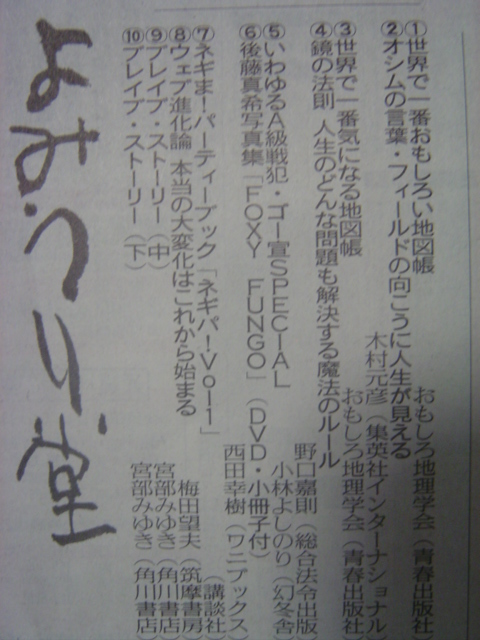 ①世界で一番おもしろい地図帳
おもしろ地理学会(青春出版社
②オシムの言葉・フィールドの向こうに人生が見える
木村元彦(集英社インターナショナル
③世界で一番気になる地図帳
おもしろ地理学会(青春出版社
④鏡の法則 人生のどんな問題も解決する魔法のルール
野口嘉則(総合法令出版
⑤いわゆるA級戦犯・ゴー宣SPECIAL
小林よしのり(幻冬舎
⑥後藤真希写真集「FOXY FUNGO」(DVD・小冊子付)
西田幸樹(ワニブックス)
⑦ネギま!パーティーブック「ネギパ!Vol1」
(講談社
⑧ウェブ進化論 本当の大変化はこれから始まる
梅田望夫(筑摩書房
⑨ブレイブ・ストーリー(中)
宮部みゆき(角川書店
⑩ブレイブ・ストーリー(下)
宮部みゆき(角川書店
よみうり堂